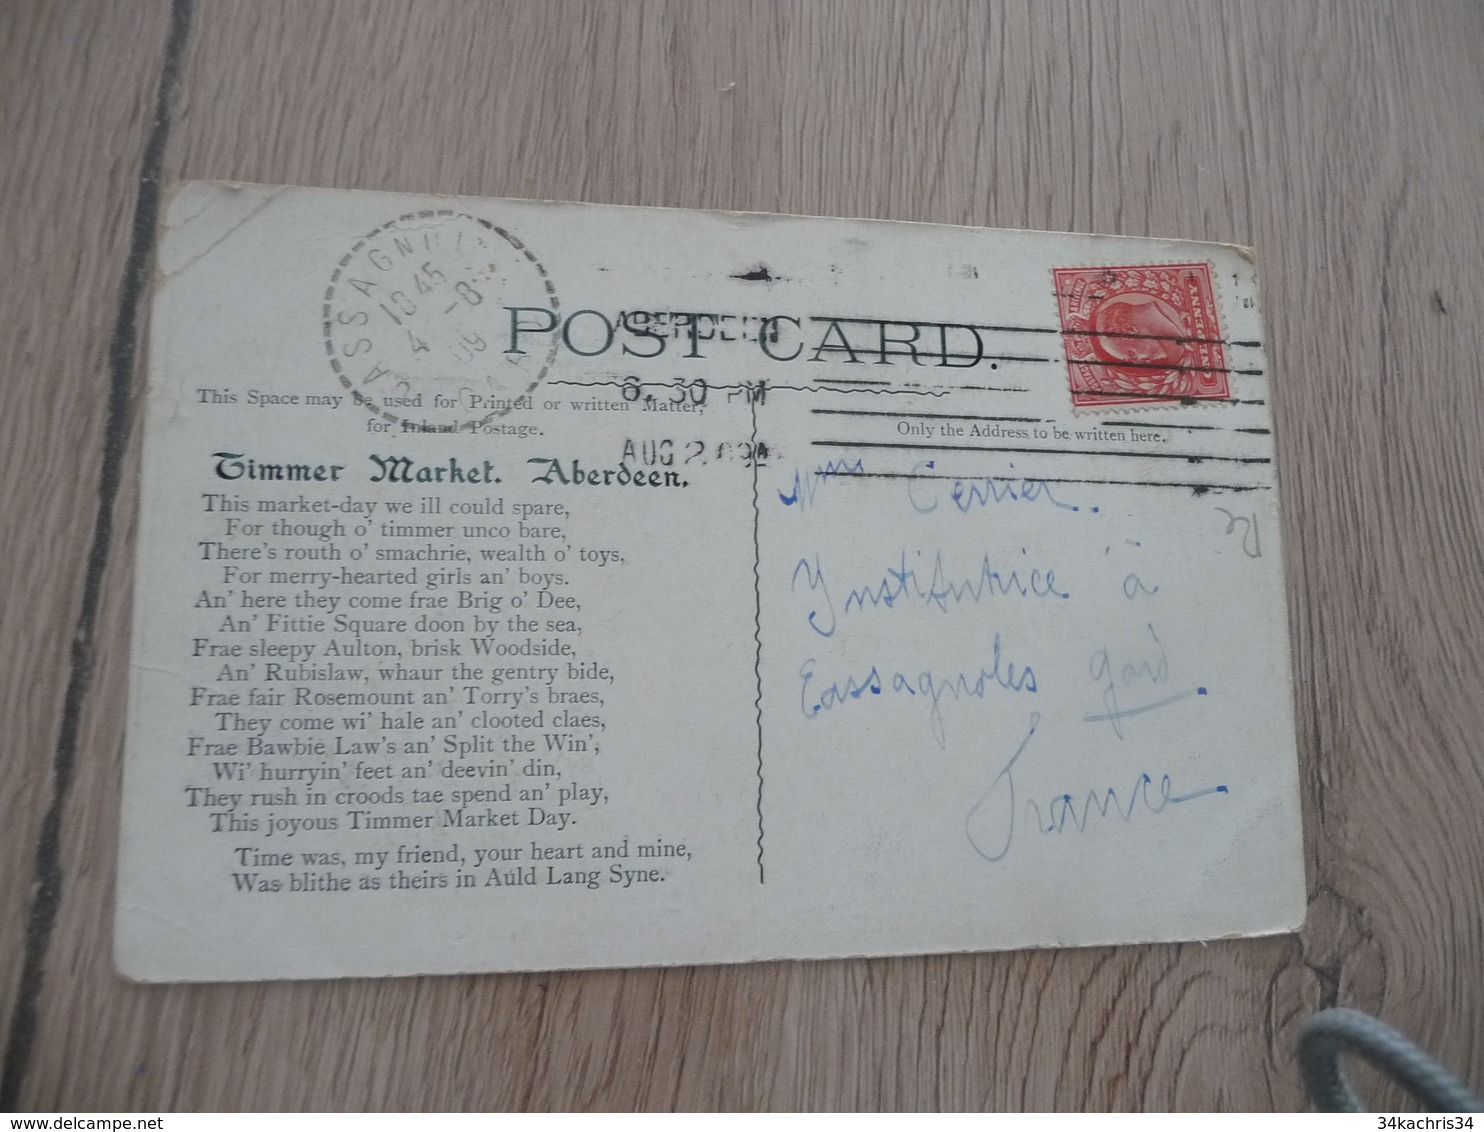 CASSAGNOL
18 45
4 -8
09
GARD
POST CARD.
ABERDEEN
6.30 PM
AUG 2 09
ONE PENNY
This Space may be used for Printed or written Matter,
for Inland Postage.
Only the Address to be written here.
Timmer Market. Aberdeen.
This market-day we ill could spare,
For though o' timmer unco bare,
There's routh o' smachrie, wealth o' toys,
For merry-hearted girls an' boys.
An' here they come frae Brig o' Dee,
An' Fittie Square doon by the sea,
Frae sleepy Aulton, brisk Woodside,
An' Rubislaw, whaur the gentry bide,
Frae fair Rosemount an' Torry's braes,
They come wi' hale an' clooted claes,
Frae Bawbie Law's an' Split the Win',
Wi' hurryin' feet an' deevin' din,
They rush in croods tae spend an' play,
This joyous Timmer Market Day.
Time was, my friend, your heart and mine,
Was blithe as theirs in Auld Lang Syne.
Mme Cerrier.
Institutrice à
Cassagnoles Gard.
France.
34kachris34